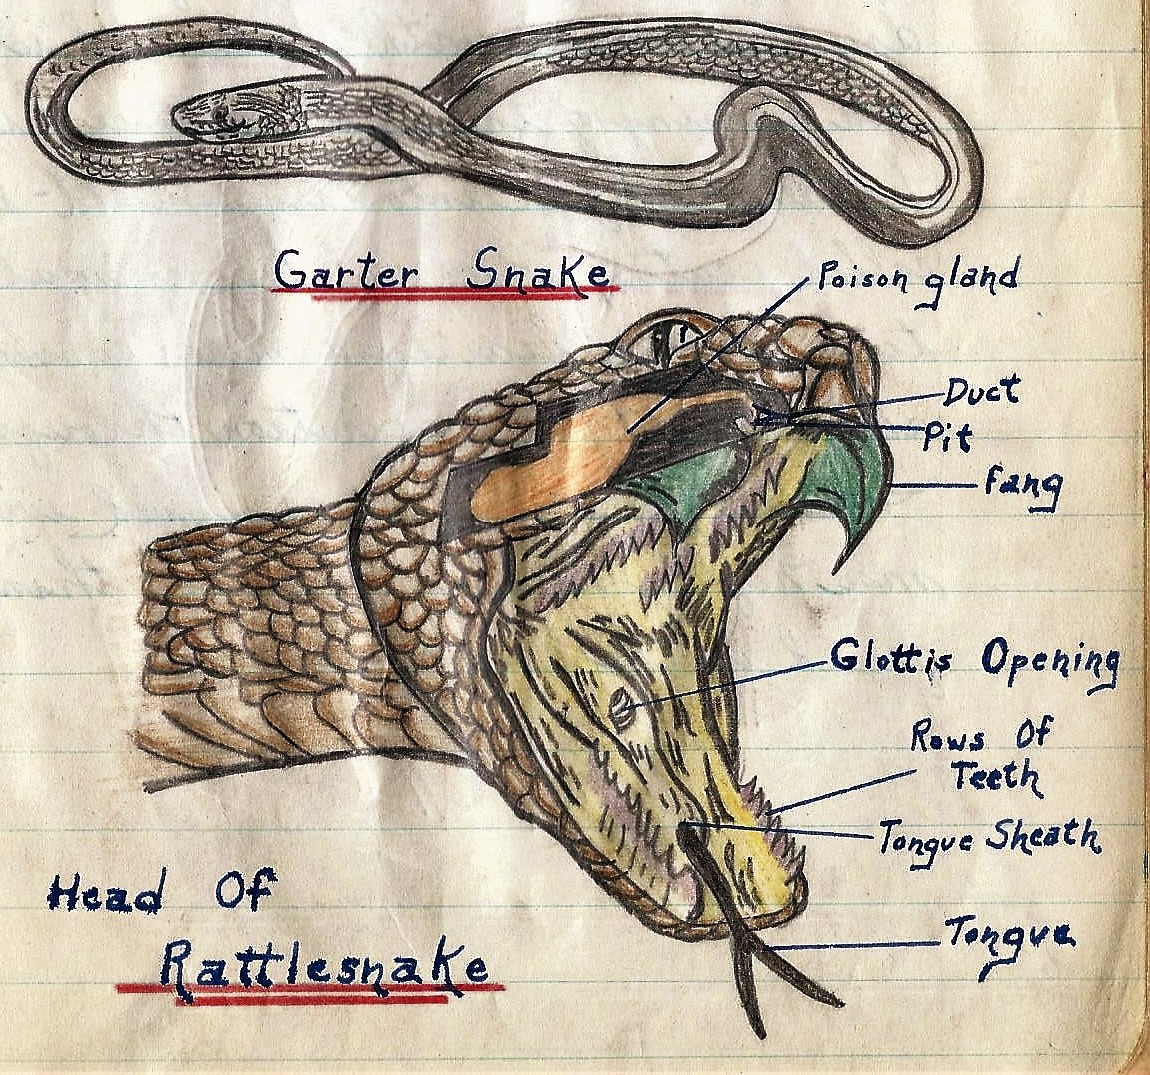 Garter Snake
Poison gland
Duct
Pit
Fang
Glottis Opening
Rows Of
Teeth
Tongue Sheath
Tongue
Head Of
Rattlesnake